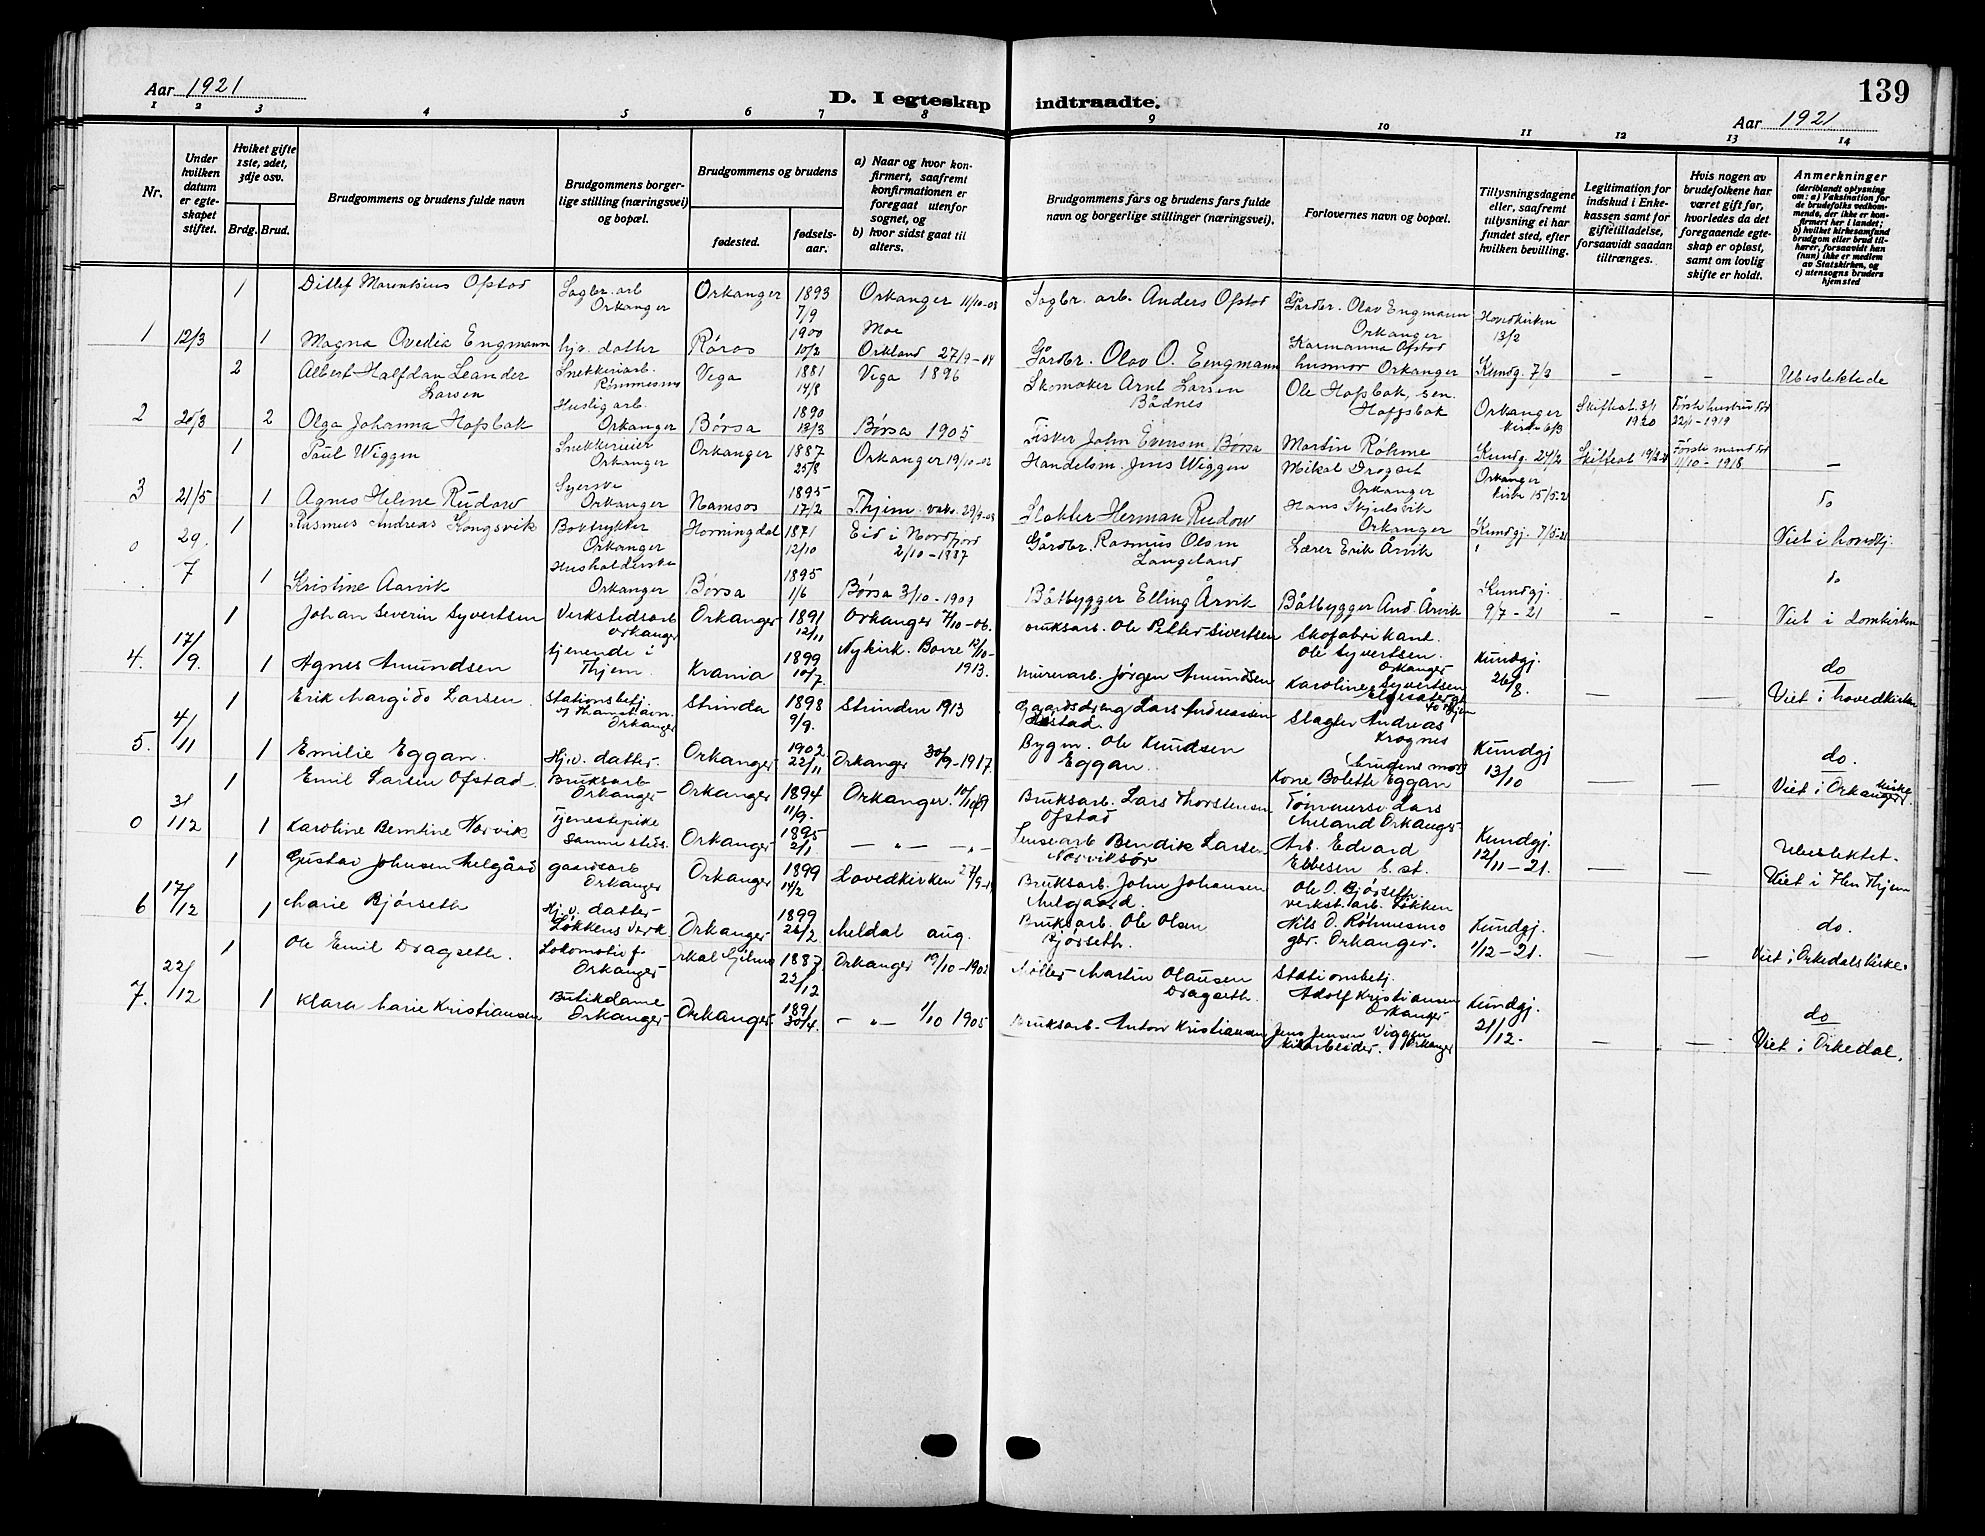 139
Aar 1921
D. I egteskap indtraadte.
Aar 1921
1 2 3 4 5 6 7 8 9 10 11 12 13 14
Nr.
Under hvilken datum er egteskapet stiftet.
Hviket gifte 1ste, 2det, 3dje osv.
Brdg. Brud.
Brudgommens og brudens fulde navn
Brudgommens borgerlige stilling (næringsvei) og bopæl.
Brudgommens og brudens
fødested. fødselsaar.
a) Naar og hvor konfirmert, saafremt konfirmationen er foregaat utenfor sognet, og
b) hvor sidst gaat til alters.
Brudgommens fars og brudens fars fulde navn og borgerlige stillinger (næringsvei),
Forlovernes navn og bopæl.
Tillysningsdagene eller, saafremt tillysning ei har fundet sted, efter hvilken bevilling.
Legitimation for indskud i Enkekassen samt for giftetilladelse, forsaavidt saadan tiltrænges.
Hvis nogen av brudefolkene har været gift før, hvorledes da det foregaaende egteskap er opløst, samt om lovlig skifte er holdt.
Anmerkninger (deriblandt oplysning om: a) Vaksination for de brudefolks vedkommende, der ikke er konfirmert her i landet; b) hvilket kirkesamfund brudgom eller brud tilhører, forsaavidt han (hun) ikke er medlem av Statskirken, og c) utensogns bruders hjemsted
1 Ditlef Marentsius Ofstad Sagbr. arb Orkanger Orkanger 1893 7/9 Orkanger 11/10-08 Sagbr. arb. Anders Ofstad Gårdbr. Olav Engmann Orkanger Hovedkirken 13/2
1 12/3 1 Magna Ovedia Engmann hjv. datter Røros 1900 10/2 Moe Orkland 27/9-14 Gårdbr. Olav O. Engmann Karmanna Ofstad husmor Orkanger Kundg. 7/3 – – Ubeslektede
2 Albert Halfdan Leander Larsen Snekkeriarb. Vega 1881 14/8 Vega 1896 Skomaker Arnt Larsen Bådnes Ole Hofsbak, sen. Hofgsbak Orkanger kirke 6/3 Skifteat. 3/1 1920 Første hustru
2 20/3 2 Olga Johanna Hofsbak Huslig arb. Orkanger Børsa 1890 13/3 Børsa 1905 Fisker John Evensen Børsa Martin Røhme Kundg. 24/2 Skifteat Første mand 11/10-1918 –
1 Paul Wiggen Snekkerieier Orkanger Orkanger 1887 25/8 Orkanger 19/10-02 Handelsm. Jens Wiggen Mikal Dragset Orkanger Orkanger kirke 15/5-21 do
3 21/5 1 Agnes Helene Rudow Syerske Orkanger Namsos 1895 17/2 T.hjem 29/9-08 Slakter Herman Rudow Hans Skjulsvik Orkanger Kundgj. 7/5-21 Viet i hovedkj.
0 29. 1 Rasmus Andreas Kongsvik Boktrykker Orkanger Horningdal 1871 12/10 Eid i Nordfjord 2/10-1887 Gårdbr. Rasmus Olsen Langeland Lærer Erik Årvik do
7 1 Kristine Aarvik Husholderske Orkanger Børsa 1895 1/6 Børsa 3/10-1909 Båtbygger Elling Årvik Båtbygger And Årvik Kundgj. 9/7-21 – – Viet i Domkirken
1 Johan Severin Syvertsen Verkstedsarb Orkanger Orkanger 1891 12/11 Orkanger 7/10-06. Bruksarb. Ole Petter Sivertsen Skofabrikant. Ole Syvertsen. Orkanger do
4. 17/9. 1 Agnes Amundsen tjenende i Thjem Kvania 1899 10/7 Nykirk. Borre 12/10-1913. murerarb. Jørgen Amundsen Karoline Syvertsen Elgesatergt 40 Thjem Kundgj. 26/8. – – Viet i hovedkirken
1 Erik Margido Larsen Stationsbetj. Orkanger Strinda 1898 9/9. Strinden 1913 Gaardsdreng Lars Andreassen Slagter Andreas Krognes do.
5. 4/11 1 Emilie Eggan. Hj.v. datter. Orkanger 1902 22/11 Orkanger 30/9-1917. Bygm. Ole Knudsen Eggan. brudens mor Kone Bolette Eggan Kundgj 13/10 – – Viet i Orkanger kirke
1 Emil Larsen Ofstad. Bruksarb Orkanger Orkanger 1894 11/9. Orkanger. 10/10-09 Bruksarb. Lars Thorstensen Ofstad Tømmersn. Lars Meland Orkanger Ubeslektet.
0 31/12 1 Karoline Berntine Norvik Tjenestepike Samme steds. Orkanger 1895 2/1 – „ – „ – Linsearb Bendik Larsen Norviksør Arb. Edvard Ebbesen s. st. Kundgj. 12/11-21. – – Viet i Hen Thjem
1 Gustav Johnsen Melgård gaardsarb Orkanger Orkanger 1899 14/2 Hovedkirken Bruksarb. John Johansen Melgaard. Ole O. Bjørseth verkst. arb. Løkken do.
6 17/12 1 Marie Bjørseth Hj.v. datter Løkkens Verk. Orkanger 1899 26/2 Meldal aug. Bruksarb. Ole Olsen Bjørseth. Nils O. Røhmesmo gbr. Orkanger. Kundgj. 1/12-21. – – Viet i Orkedals kirke.
1 Ole Emil Dragseth. Lokomotivf. Orkanger 1887 22/12 Orkanger 19/10-1902 Møller Martin Olausen Dragseth. Stationsbetj. Adolf Kristiansen Orkanger do
7. 22/12 1 Klara Marie Kristiansen Butikdame Orkanger Orkanger. 1891 30/4. – „ – 1/10 1905 Bruksarb. Anton Kristiansen Jens Jensen Viggen Orkanger Kundgj. 21/12. – – Viet i Orkedal.